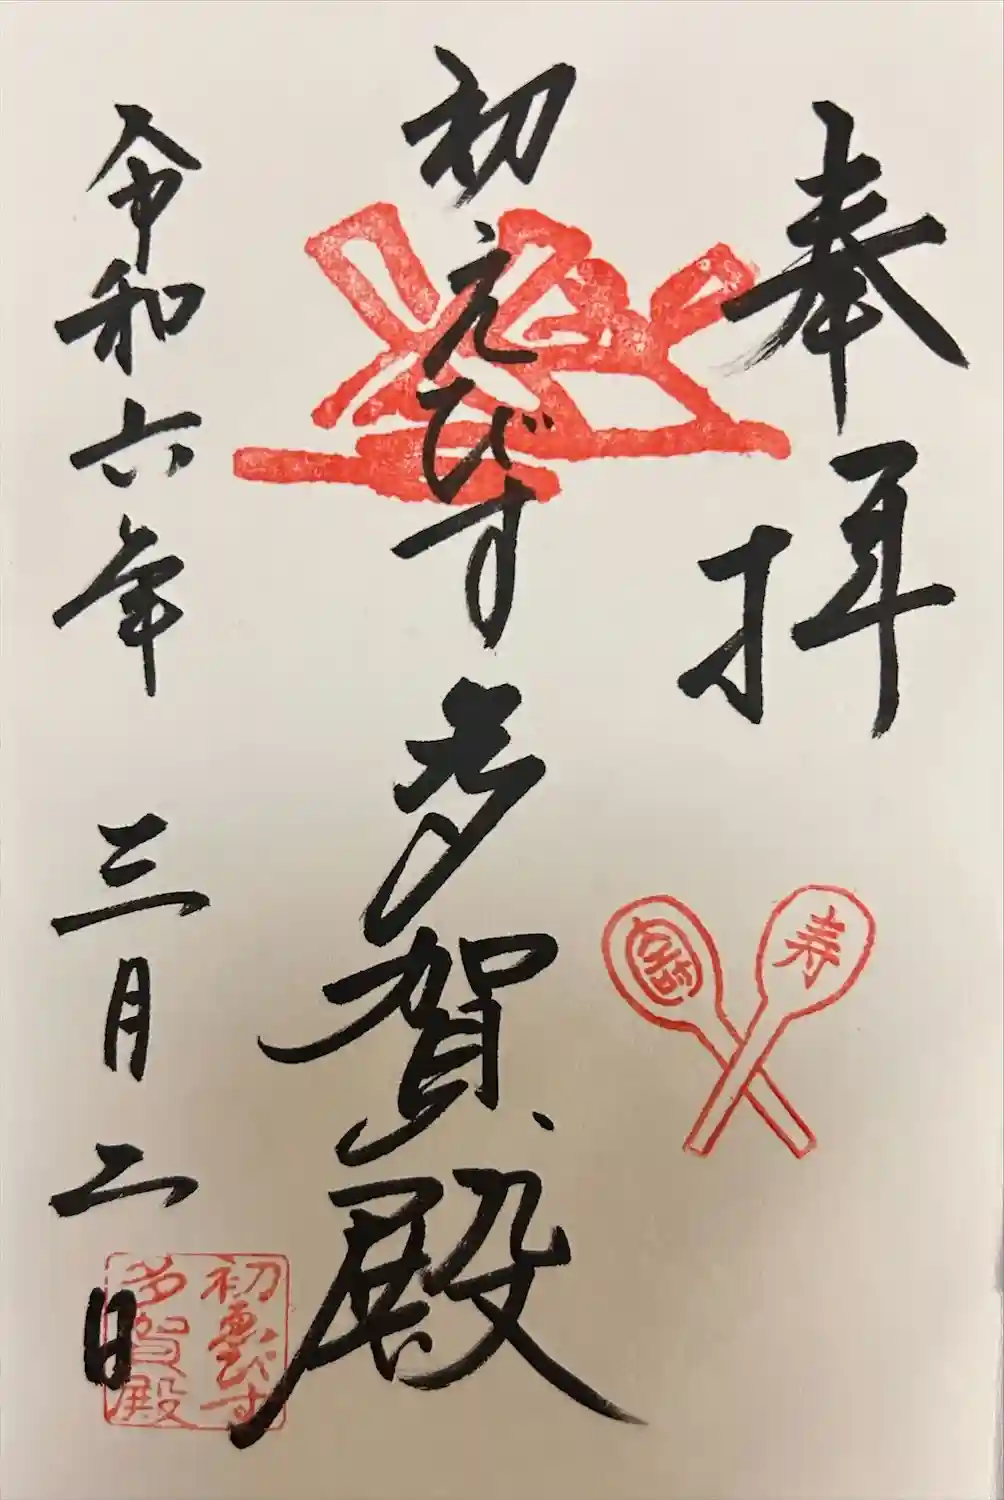 奉拝
初えびす 多賀殿
令和六年 三月二日
寿
初恵びす
多賀殿